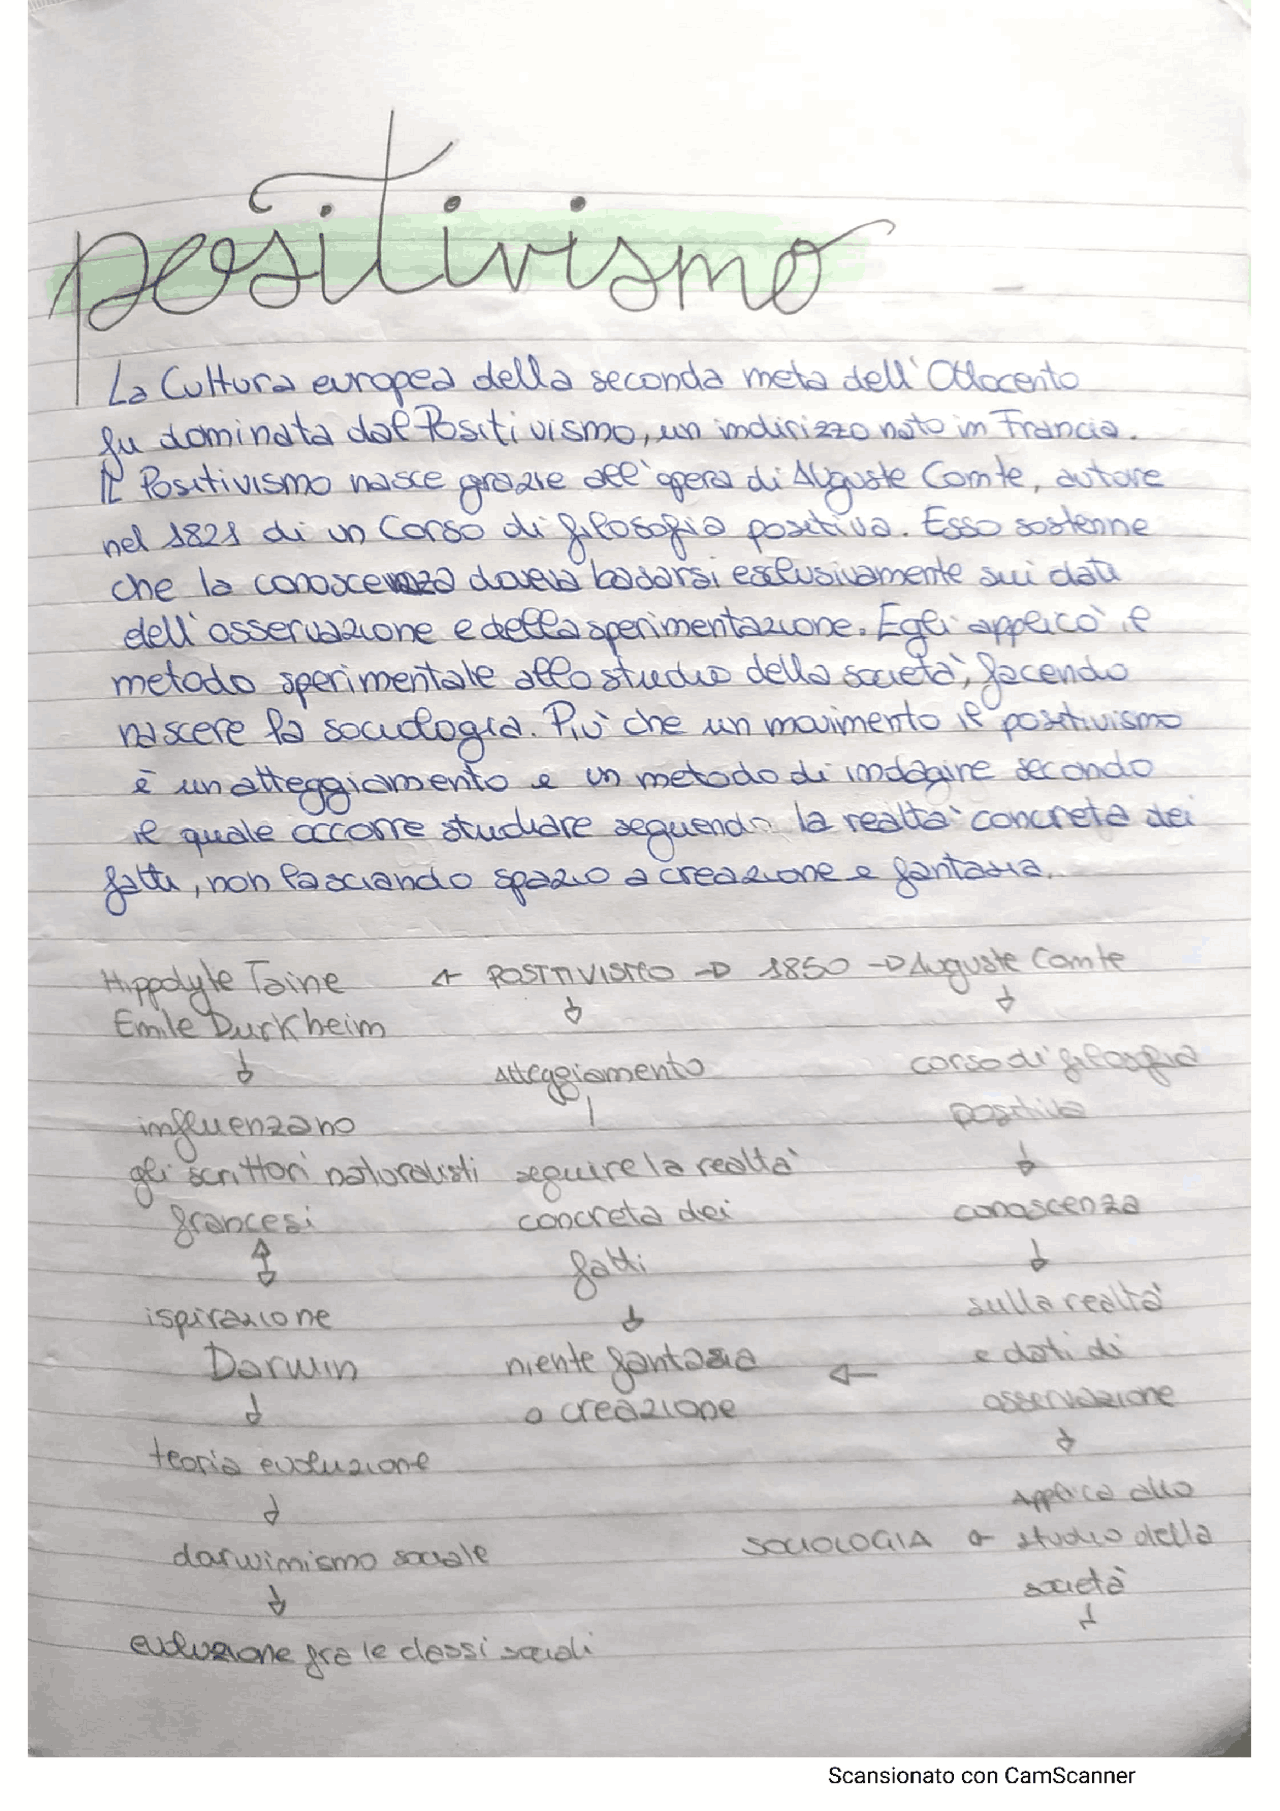 positivismo
La Cultura europea della seconda metà dell'Ottocento
fu dominata dal Positivismo, un indirizzo nato in Francia.
Il Positivismo nasce grazie all'opera di Auguste Comte, autore
nel 1821 di un Corso di filosofia positiva. Esso sostenne
che la conoscenza doveva basarsi esclusivamente sui dati
dell'osservazione e della sperimentazione. Egli applicò il
metodo sperimentale allo studio della società, facendo
nascere la sociologia. Più che un movimento il positivismo
è un atteggiamento e un metodo di indagine secondo
il quale occorre studiare seguendo la realtà concreta dei
fatti, non lasciando spazio a creazione e fantasia.
Hippolyte Taine ← POSITIVISMO → 1850 → Auguste Comte
Emile Durkheim
↓ ↓ ↓
Atteggiamento corso di filosofia
influenzano positiva
gli scrittori naturalisti seguire la realtà ↓
francesi concreta dei conoscenza
↕ fatti ↓
ispirazione ↓ sulla realtà
Darwin niente fantasia ← e dati di
↓ o creazione osservazione
teoria evoluzione ↓
↓ Applica allo
darwinismo sociale SOCIOLOGIA ← studio della
↓ società
evoluzione fra le classi sociali ↓
Scansionato con CamScanner